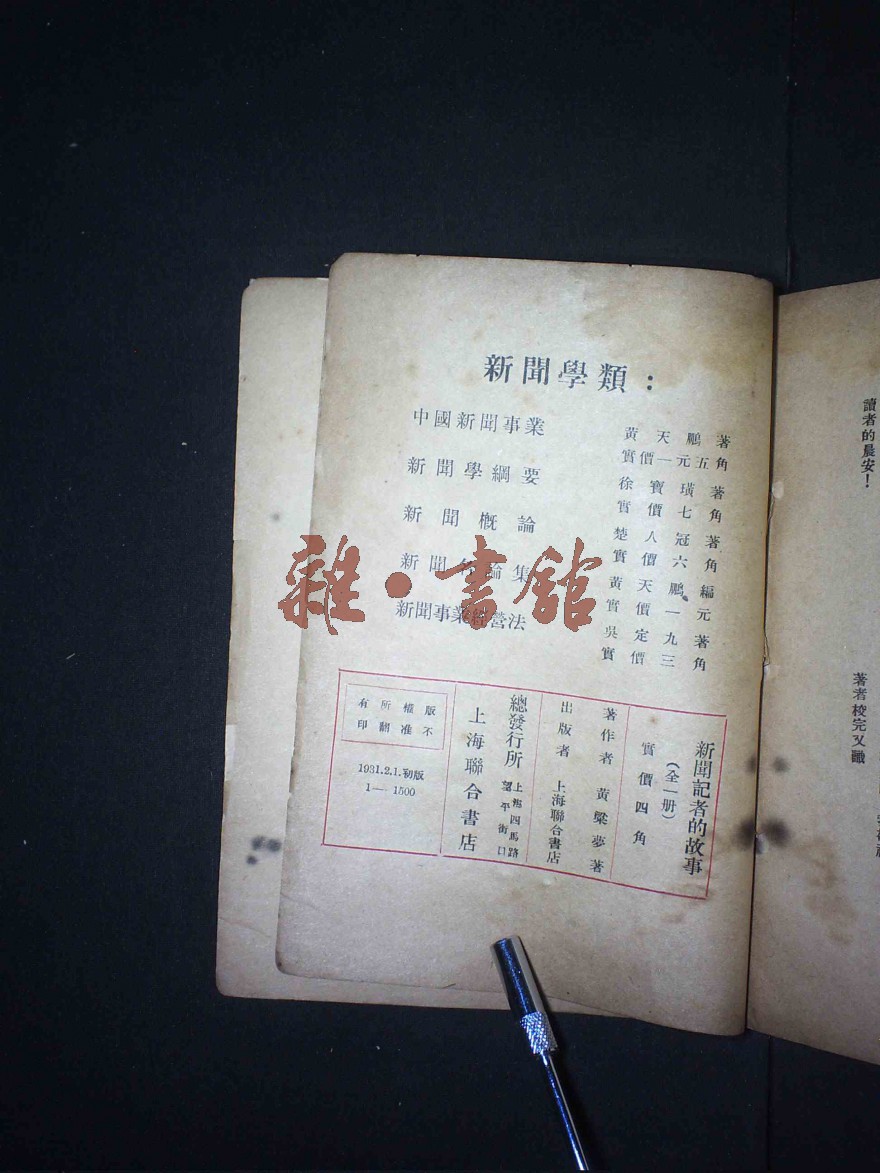 新聞學類：
中國新聞事業 黃天鵬著
實價一元五角
新聞學綱要 徐寶璜著
實價七角
新聞概論 楚人冠著
實價六角
新聞 論集 黃天鵬編
實價一元
新聞事業經營法 吳定九著
實價三角
新聞記者的故事
（全一册）
實價四角
著作者 黃梁夢著
出版者 上海聯合書店
總發行所 上海四馬路
望平街口
上海聯合書店
版權所有
不准翻印
1931.2.1.初版
1—1500
讀者的晨安！
著者校完又識
雜·書館